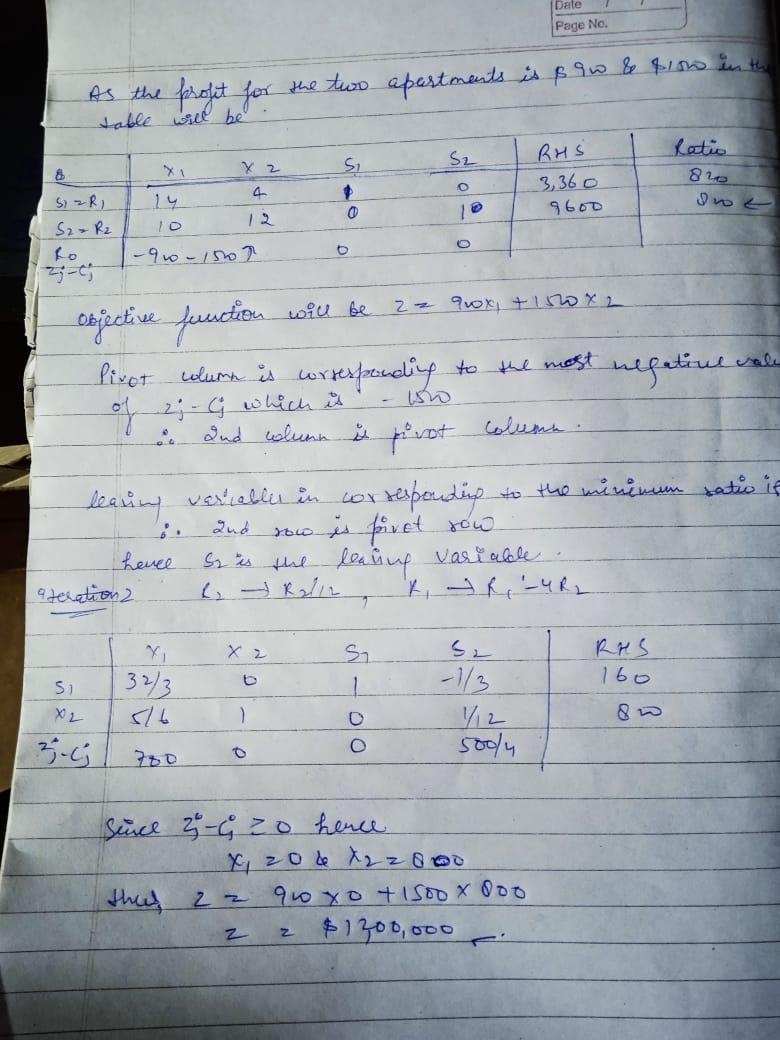 Date / /
Page No.
As the profit for the two apartments is $900 & $1500 in the
table will be
B x1 x2 S1 S2 RHS Ratio
S1 = R1 14 4 1 0 3,360 820
S2 = R2 10 12 0 1 9600 800 ←
R0 -900 -1500 ↑ 0 0
Zj-Cj
Objective function will be Z = 900x1 + 1500x2
Pivot column is corresponding to the most negative value
of Zj-Cj which is -1500
∴ 2nd column is pivot column.
leaving variables in corresponding to the minimum ratio is
∴ 2nd row is pivot row
hence S2 is the leaving variable.
iteration 2 R2 → R2/12 , R1 → R1 - 4R2
x1 x2 S1 S2 RHS
S1 32/3 0 1 -1/3 160
x2 5/6 1 0 1/12 800
Zj-Cj 0 0 500/4
Since Zj-Cj ≥ 0 hence
x1 = 0 & x2 = 800
thus Z = 900 x 0 + 1500 x 800
Z = $1200,000